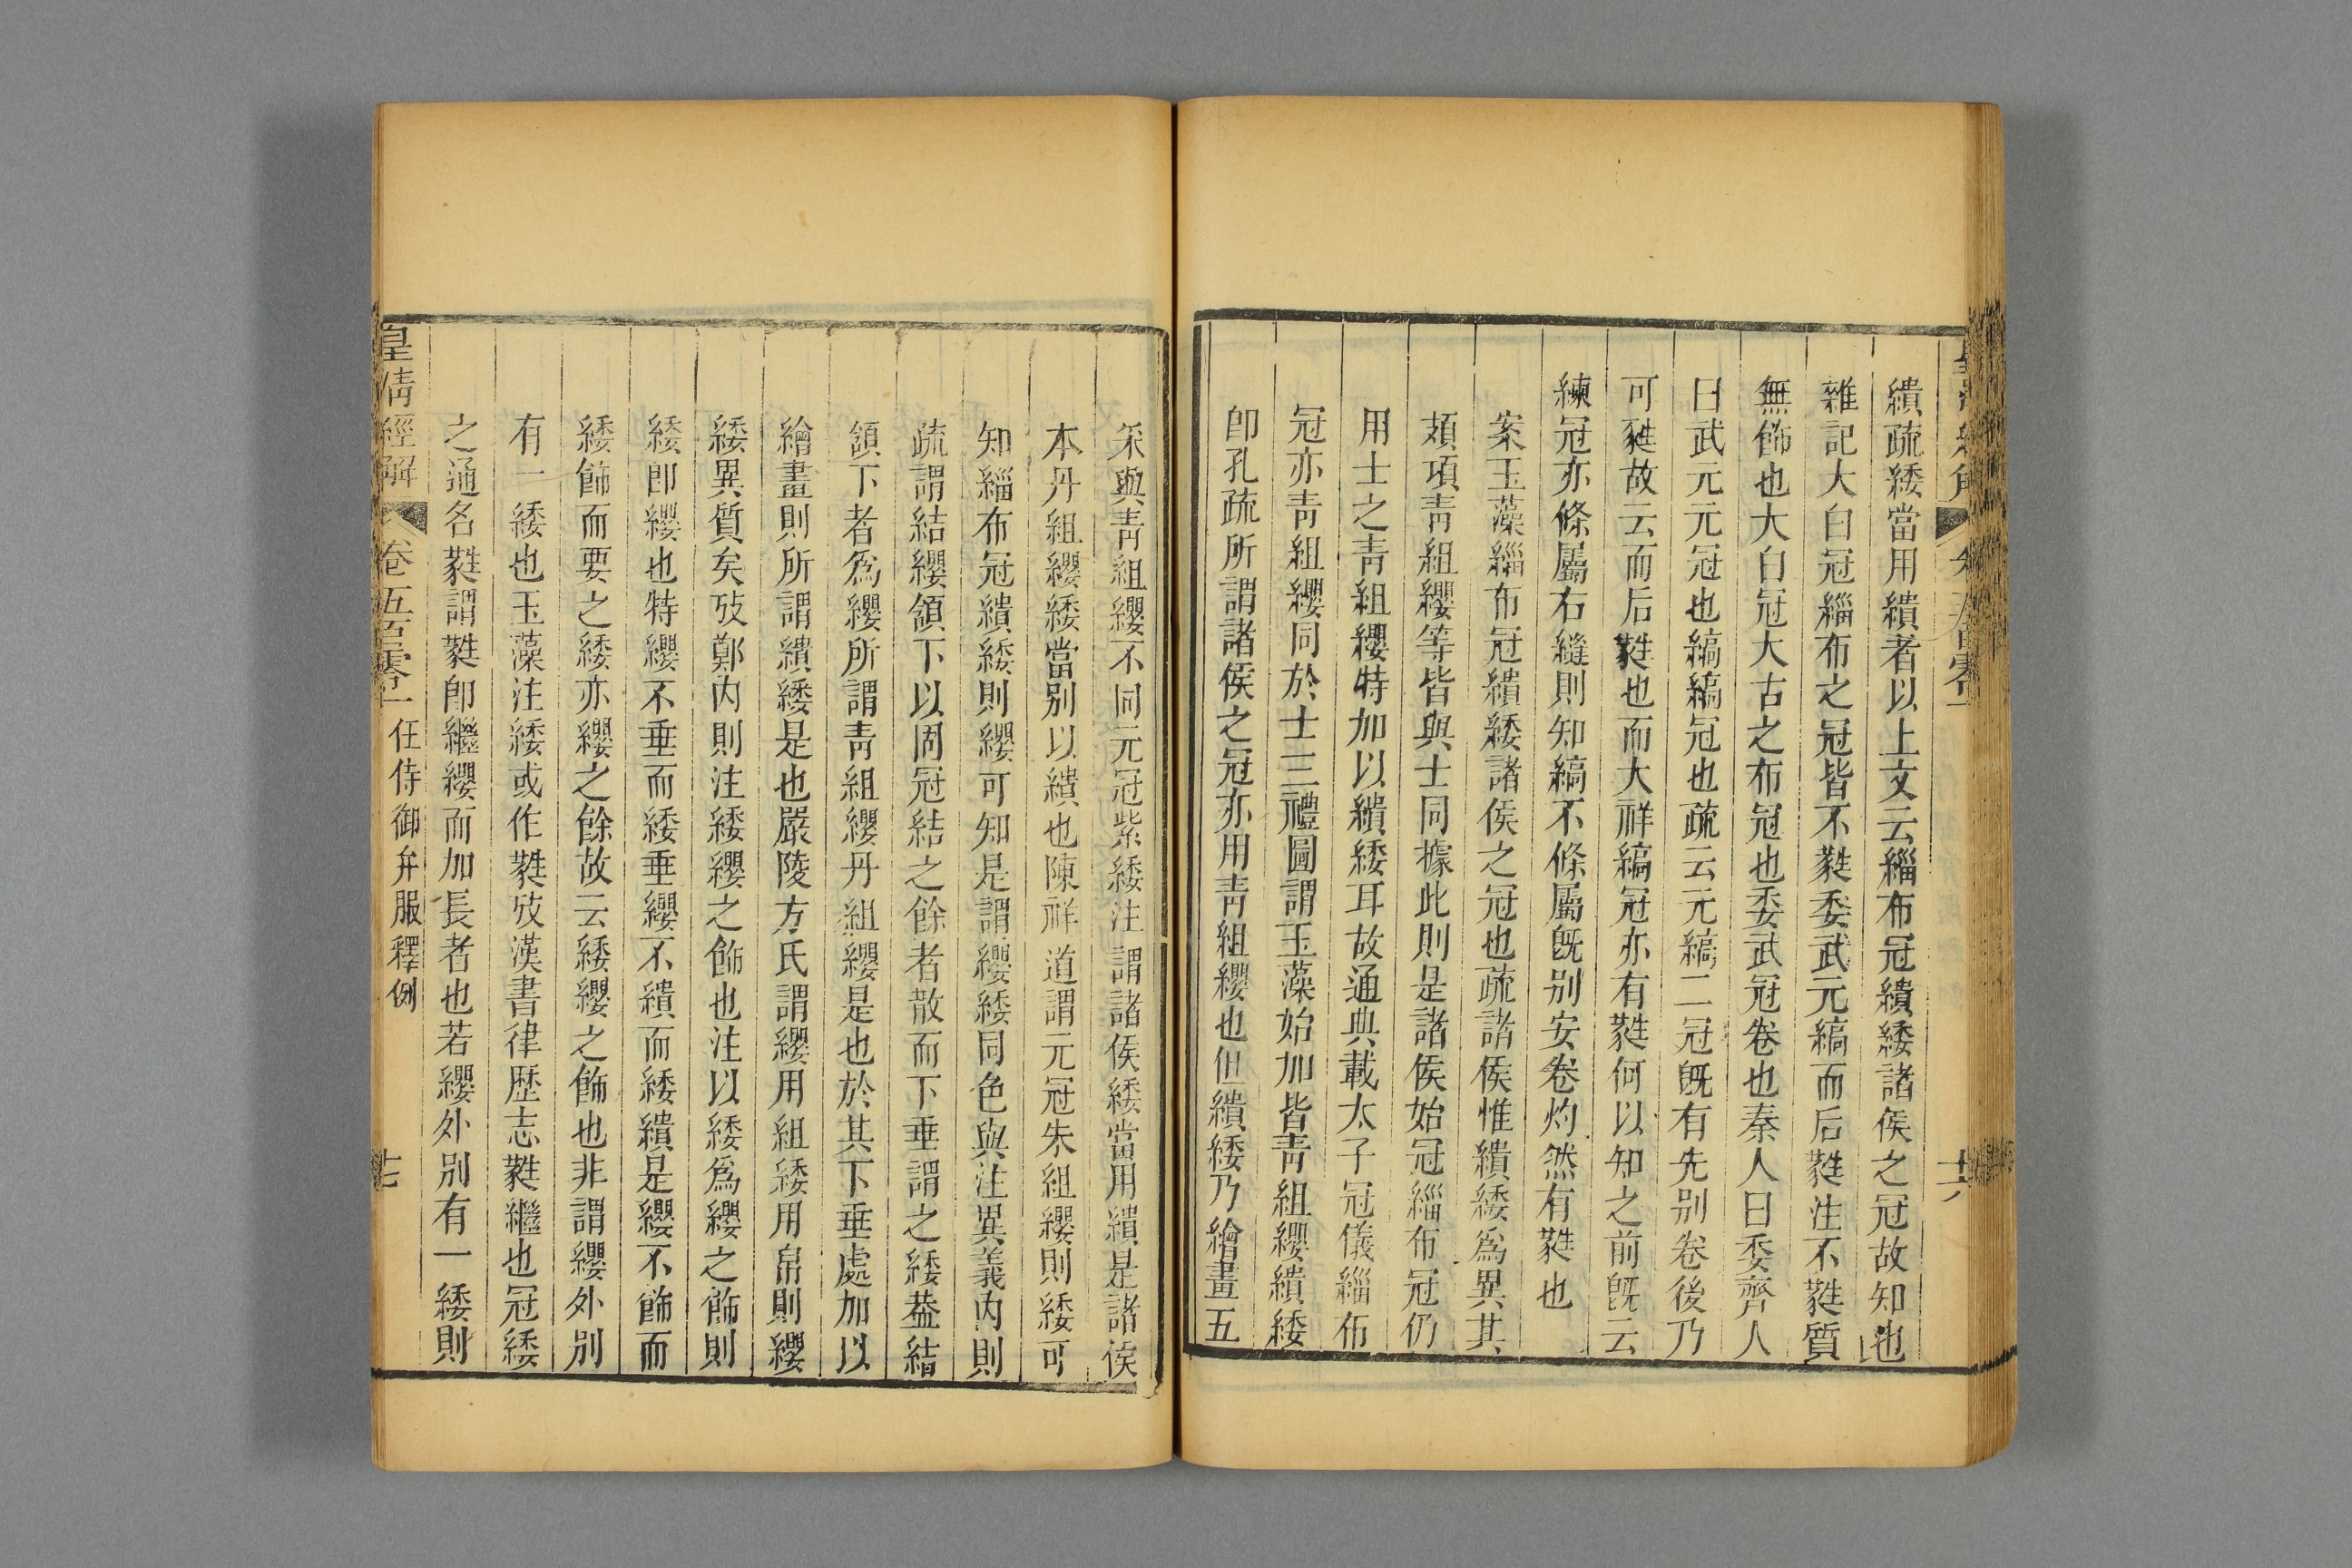 繢疏緌當用繢者以上文云緇布冠繢緌諸侯之冠故知也
雜記大白冠緇布之冠皆不蕤委武元縞而后蕤注不蕤質
無飾也大白冠大古之布冠也委武冠卷也秦人曰委齊人
曰武元元冠也縞縞冠也疏云元縞二冠既有先別卷後乃
可蕤故云而后蕤也而大祥縞冠亦有蕤何以知之前既云
練冠亦條屬右縫則知縞不條屬既別安卷灼然有蕤也
案玉藻緇布冠繢緌諸侯之冠也疏諸侯惟繢緌爲異其
頍項青組纓等皆與士同據此則是諸侯始冠緇布冠仍
用士之青組纓特加以繢緌耳故通典載太子冠儀緇布
冠亦青組纓同於士三禮圖謂玉藻始加皆青組纓繢緌
卽孔疏所謂諸侯之冠亦用青組纓也但繢緌乃繪畫五
采與青組纓不同元冠紫緌注謂諸侯緌當用繢是諸侯
本丹組纓緌當別以繢也陳祥道謂元冠朱組纓則緌可
知緇布冠繢緌則纓可知是謂纓緌同色與注異義內則
疏謂結纓頷下以固冠結之餘者散而下垂謂之緌葢結
頷下者爲纓所謂青組纓丹組纓是也於其下垂處加以
繪畫則所謂繢緌是也嚴陵方氏謂纓用組緌用帛則纓
緌異質矣攷鄭內則注緌纓之飾也注以緌爲纓之飾則
緌卽纓也特纓不垂而緌垂纓不繢而緌繢是纓不飾而
緌飾而要之緌亦纓之餘故云緌纓之飾也非謂纓外別
有一緌也玉藻注緌或作蕤攷漢書律歷志蕤繼也冠緌
之通名蕤謂蕤卽繼纓而加長者也若纓外別有一緌則
皇清經解 卷五百零一 任侍御弁服釋例 十七